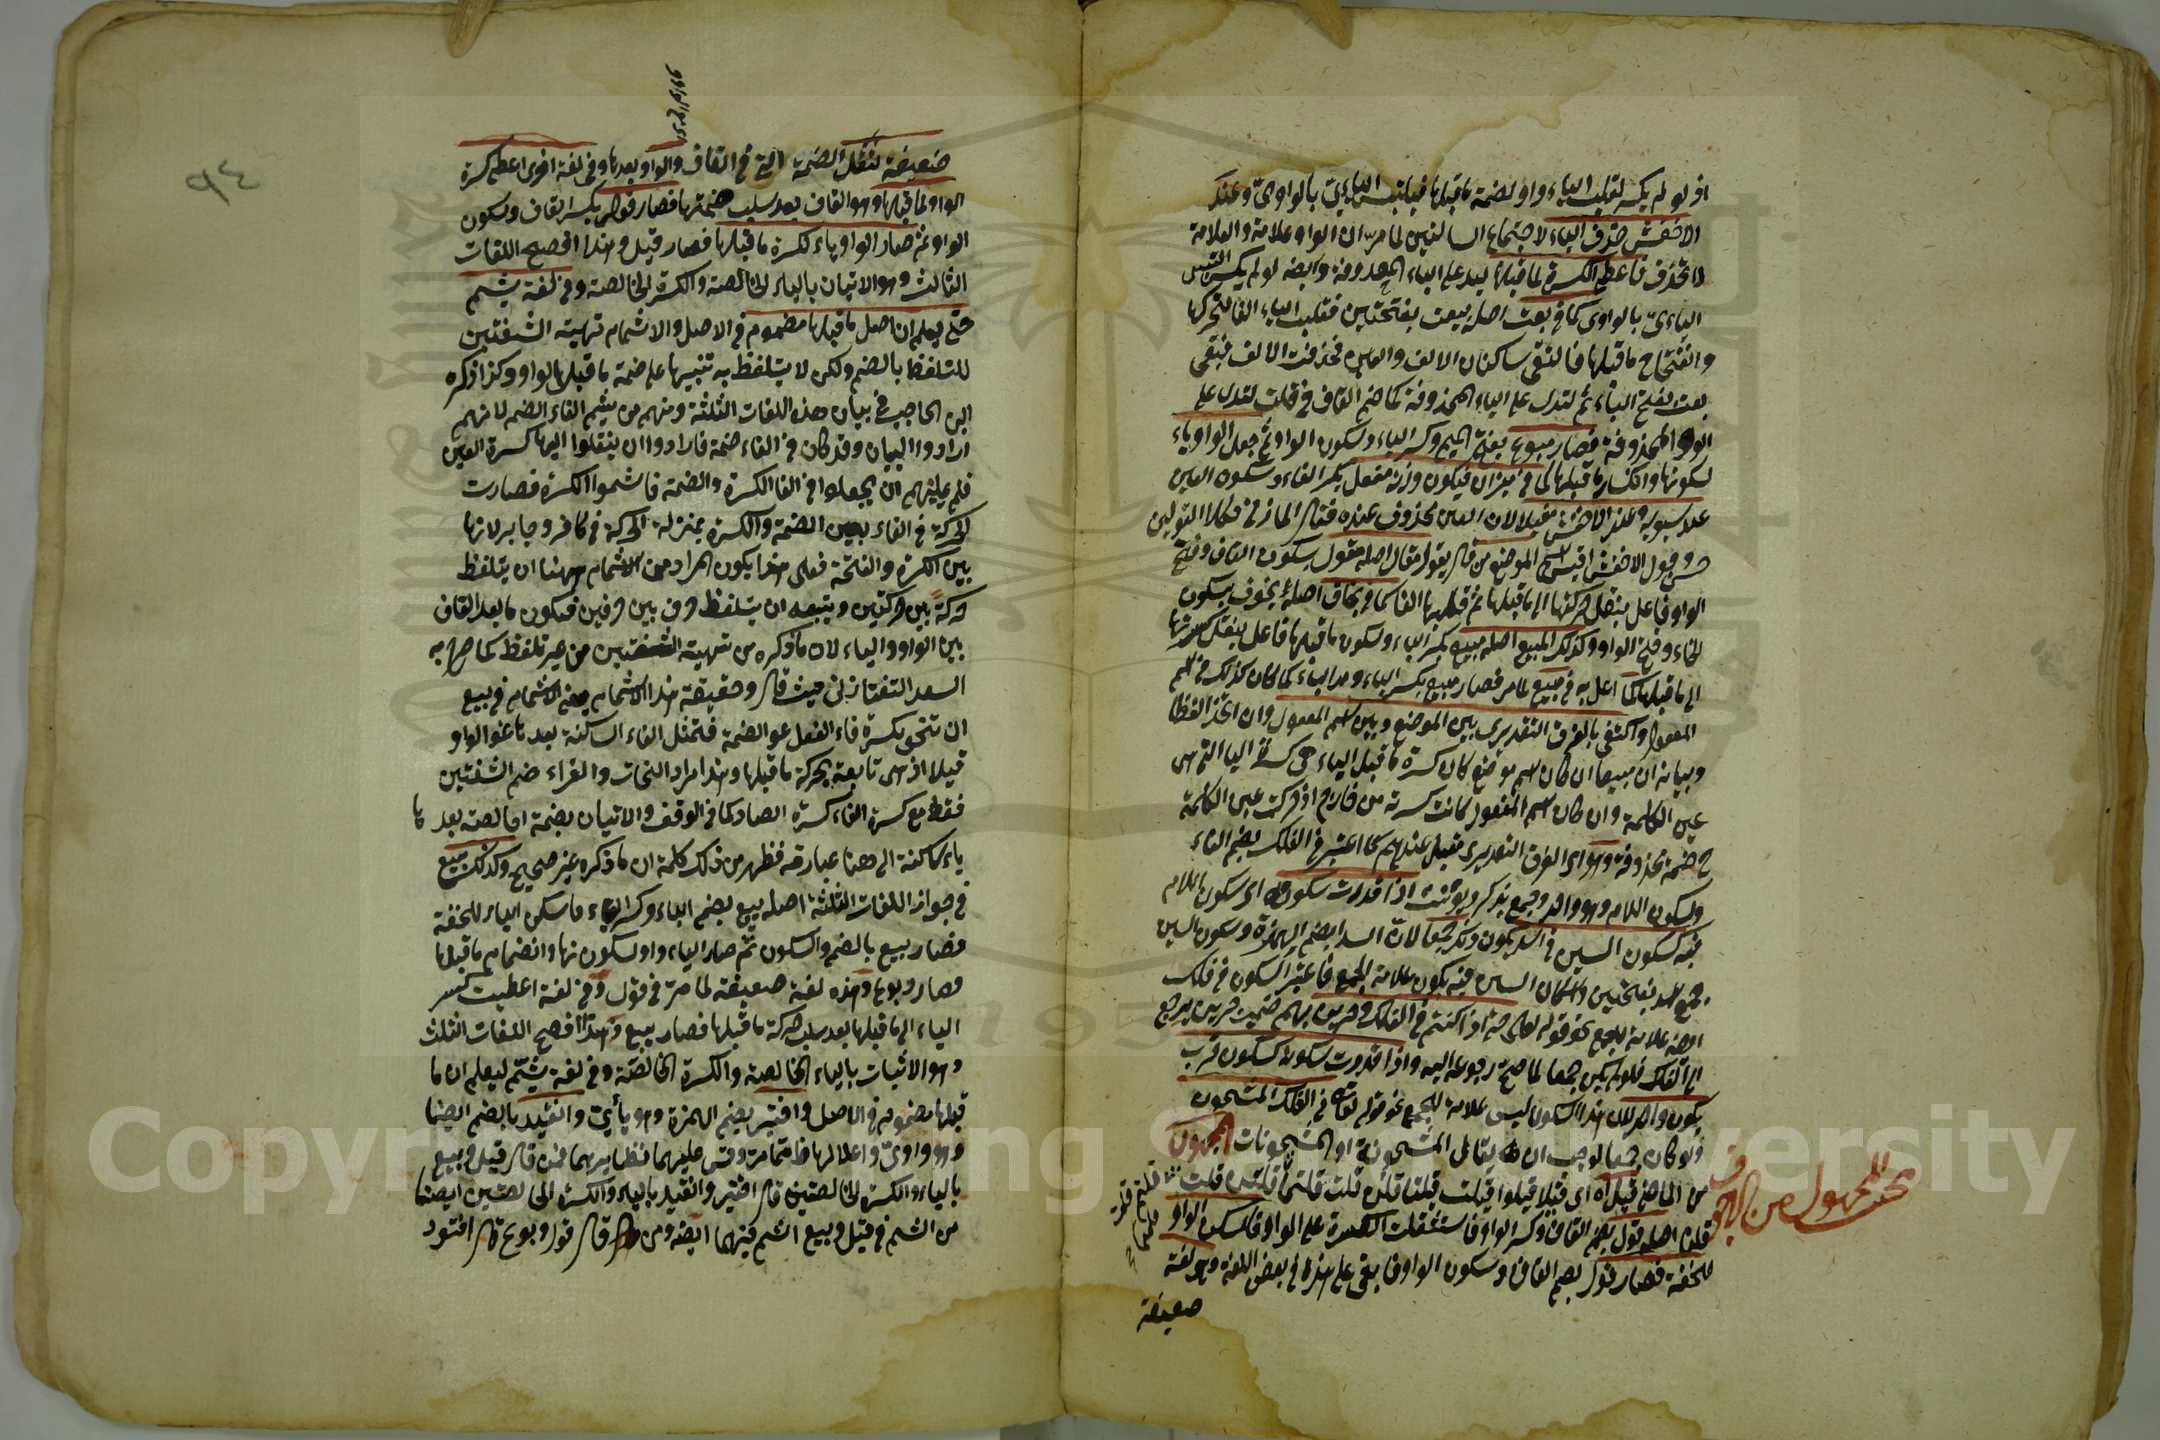 اذ لو لم يكسر لقلبت الياء واوا لضمة ما قبلها فيلتبس اليائي بالواوي وعند
الاخفش حذف الياء لاجتماع الساكنين لما مر ان الواو علامة والعلامة
لا تحذف فاعطي الكسرة لما قبلها ليدل على الياء المحذوفة وايضا لو لم يكسر التبس
اليائي بالواوي كما في بعت اصله بيعت بفتحتين فقلبت الياء الفا لتحركها
وانفتاح ما قبلها فالتقى ساكنان الالف والعين فحذفت الالف فبقي
بعت بفتح الباء ثم لتدل على الياء المحذوفة كما ضم القاف في قلت لتدل على
الواو المحذوفة فصار مبوع بفتح الميم وكسر الباء وسكون الواو ثم جعل الواو ياء
لسكونها وانكسار ما قبلها كما في ميزان فيكون وزنه مفعل بكسر الفاء وسكون العين
عند سيبويه وعند الاخفش مفيلا لان العين محذوف عنده فقال المازني فكلا القولين
حسن وقول الاخفش اقيس اسم الموضع من قال يقول مقال اصله مقول بسكون القاف وفتح
الواو فاعل بنقل حركتها الى ما قبلها ثم قلبها الفا كما في يخاف اصله يخوف بسكون
الخاء وفتح الواو وكذلك المبيع اصله مبيع بكسر الياء وسكون ما قبلها فاعل بنقل كسرتها
الى ما قبلها كما اعل به في مبيع لما مر فصار مبيع بكسر الباء ومد الياء كما كان كذلك في اسم
المفعول واكتفي بالفرق التقديري بين الموضع وبين اسم المفعول وان اتحد الفظا
وبيانه ان مبيعا ان كان اسم موضع كان كسرة ما قبل الياء هي كسرة الياء التي هي
عين الكلمة وان كان اسم المفعول كانت كسرته من خارج اذ حركت عين الكلمة
ح ضمة محذوفة وهو اي الفرق التقديري مقبل عندهم كما اعتبر في الفلك بضم الفاء
وسكون اللام وهو واحد وجمع يذكر ويؤنث اذا قدرت سكونه اي سكون اللام
فيه كسكون السين في اسد يكون ذلك جمعا لان اسدا بضم الهمزة وسكون السين
جمع اسد بفتحتين واسكان السين فيه يكون علامة الجمع فاعتبر السكون في فلك
ايضا علامة للجمع نحو قوله تعالى حتى اذا كنتم في الفلك وجرين بهم ضمير جرين يرجع
الى الفلك فلو لم يكن جمعا لما صح رجوعه اليه واذا قدرت سكونه كسكون قرب
يكون واحدا لان هذا السكون ليس علامة للجمع نحو قوله تعالى في الفلك المشحون
ولو كان جمعا لوجب ان يقال المشحونة او المشحونات المجهول
من الماضي قيل اه اي قيلا قيلوا قيلت قيلتا قلن قلت قلتما قلتم قلت
قلنا اصله قول بضم القاف وكسر الواو فاستثقلت الكسرة على الواو فاسكن الواو
للخفة فصار قول بضم القاف وسكون الواو فابقي على هذا في بعض اللغة وهو لغة
ضعيفة
بحث المجهول من الاجوف
ضعيفة لثقل الضمة التي في القاف والواو بعدها وفي لغة اخرى اعطي كسرة
الواو لما قبلها وهو القاف بعد سلب ضمتها فصار قول بكسر القاف وسكون
الواو ثم صار الواو ياء لكسرة ما قبلها فصار قيل وهذا افصح اللغات
الثالث وهو الاتيان بالياء الخالصة والكسرة الخالصة وفي لغة يشم
حتى يعلم ان اصل ما قبلها مضموم في الاصل والاشمام تهيئة الشفتين
للتلفظ بالضم ولكن لا يتلفظ به تنبيها على ضمة ما قبل الواو وكذا ذكره
ابن الحاجب في بيان هذه اللغات الثلثة ومنهم من يشم الفاء الضم لانهم
ارادوا البيان وقد كان في الفاء ضمة فارادوا ان ينقلوا اليها كسرة العين
فلم يمكنهم ان يجعلوا في الفاء الكسرة والضمة فاشموا الكسرة فصارت
الحركة في الفاء بين الضمة والكسرة بمنزلة الحركة في كافر وجابر لانها
بين الكسرة والفتحة فعلى هذا يكون المراد من الاشمام ههنا ان يتلفظ
حركة بين حركتين ويتبعه ان يتلفظ حرف بين حرفين فيكون ما بعد القاف
بين الواو والياء لان ما ذكره من تهيئة الشفتين من غير تلفظ كما صرح به
السعد التفتازاني حيث قال وحقيقة هذا الاشمام يعني الاشمام في بيع
ان تنحو بكسرة فاء الفعل نحو الضمة فتميل الفاء الساكنة بعدها نحو الواو
قيلا اذ هي تابعة لحركة ما قبلها وهذا مراد النحات والقراء ضم الشفتين
فقط مع كسرة الفاء كسرة الصاد كما في الوقف والاتيان بضمة خالصة بعدها
ياء ساكنة الى ههنا عبارته فظهر من ذلك كلمة ان ما ذكره غير صحيح وكذلك بيع
في جواز اللغات الثلثة اصله بيع بضم الباء وكسر الياء فاسكن الياء للخفة
فصار بيع بالضم والسكون ثم صار الياء واوا لسكونها وانضمام ما قبلها
فصار بوع وهذه لغة ضعيفة لما مر في قول وفي لغة اعطيت كسر
الياء الى ما قبلها بعد سلب حركة ما قبلها فصار بيع وهذا افصح اللغات الثلث
وهو الاتيان بالياء الخالصة والكسرة الخالصة وفي لغة يشم ليعلم ان ما
قبلها مضموم في الاصل واختير بضم الهمزة وهو يائي وانقيد بالضم ايضا
وهو واوي واعلالهما ظ مما مر وقس عليهما نظايرهما فمن قال قيل وبيع
بالياء والكسرة الخالصتين قال اختير وانقيد بالياء والكسرة الخالصتين ايضا
من اشم في قيل وبيع اشم فيهما ايضا ومن قال قول وبوع قال اختور
٩٤
Copyright © King Saud University
1957